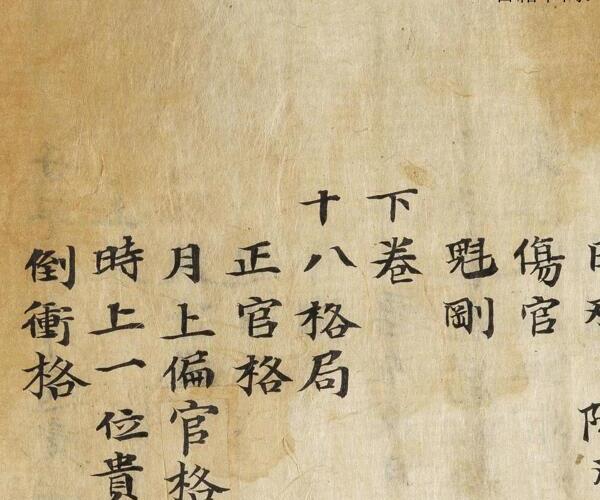 傷官
魁剛
下卷
十八格局
正官格
月上偏官格
時上一位貴
倒衝格